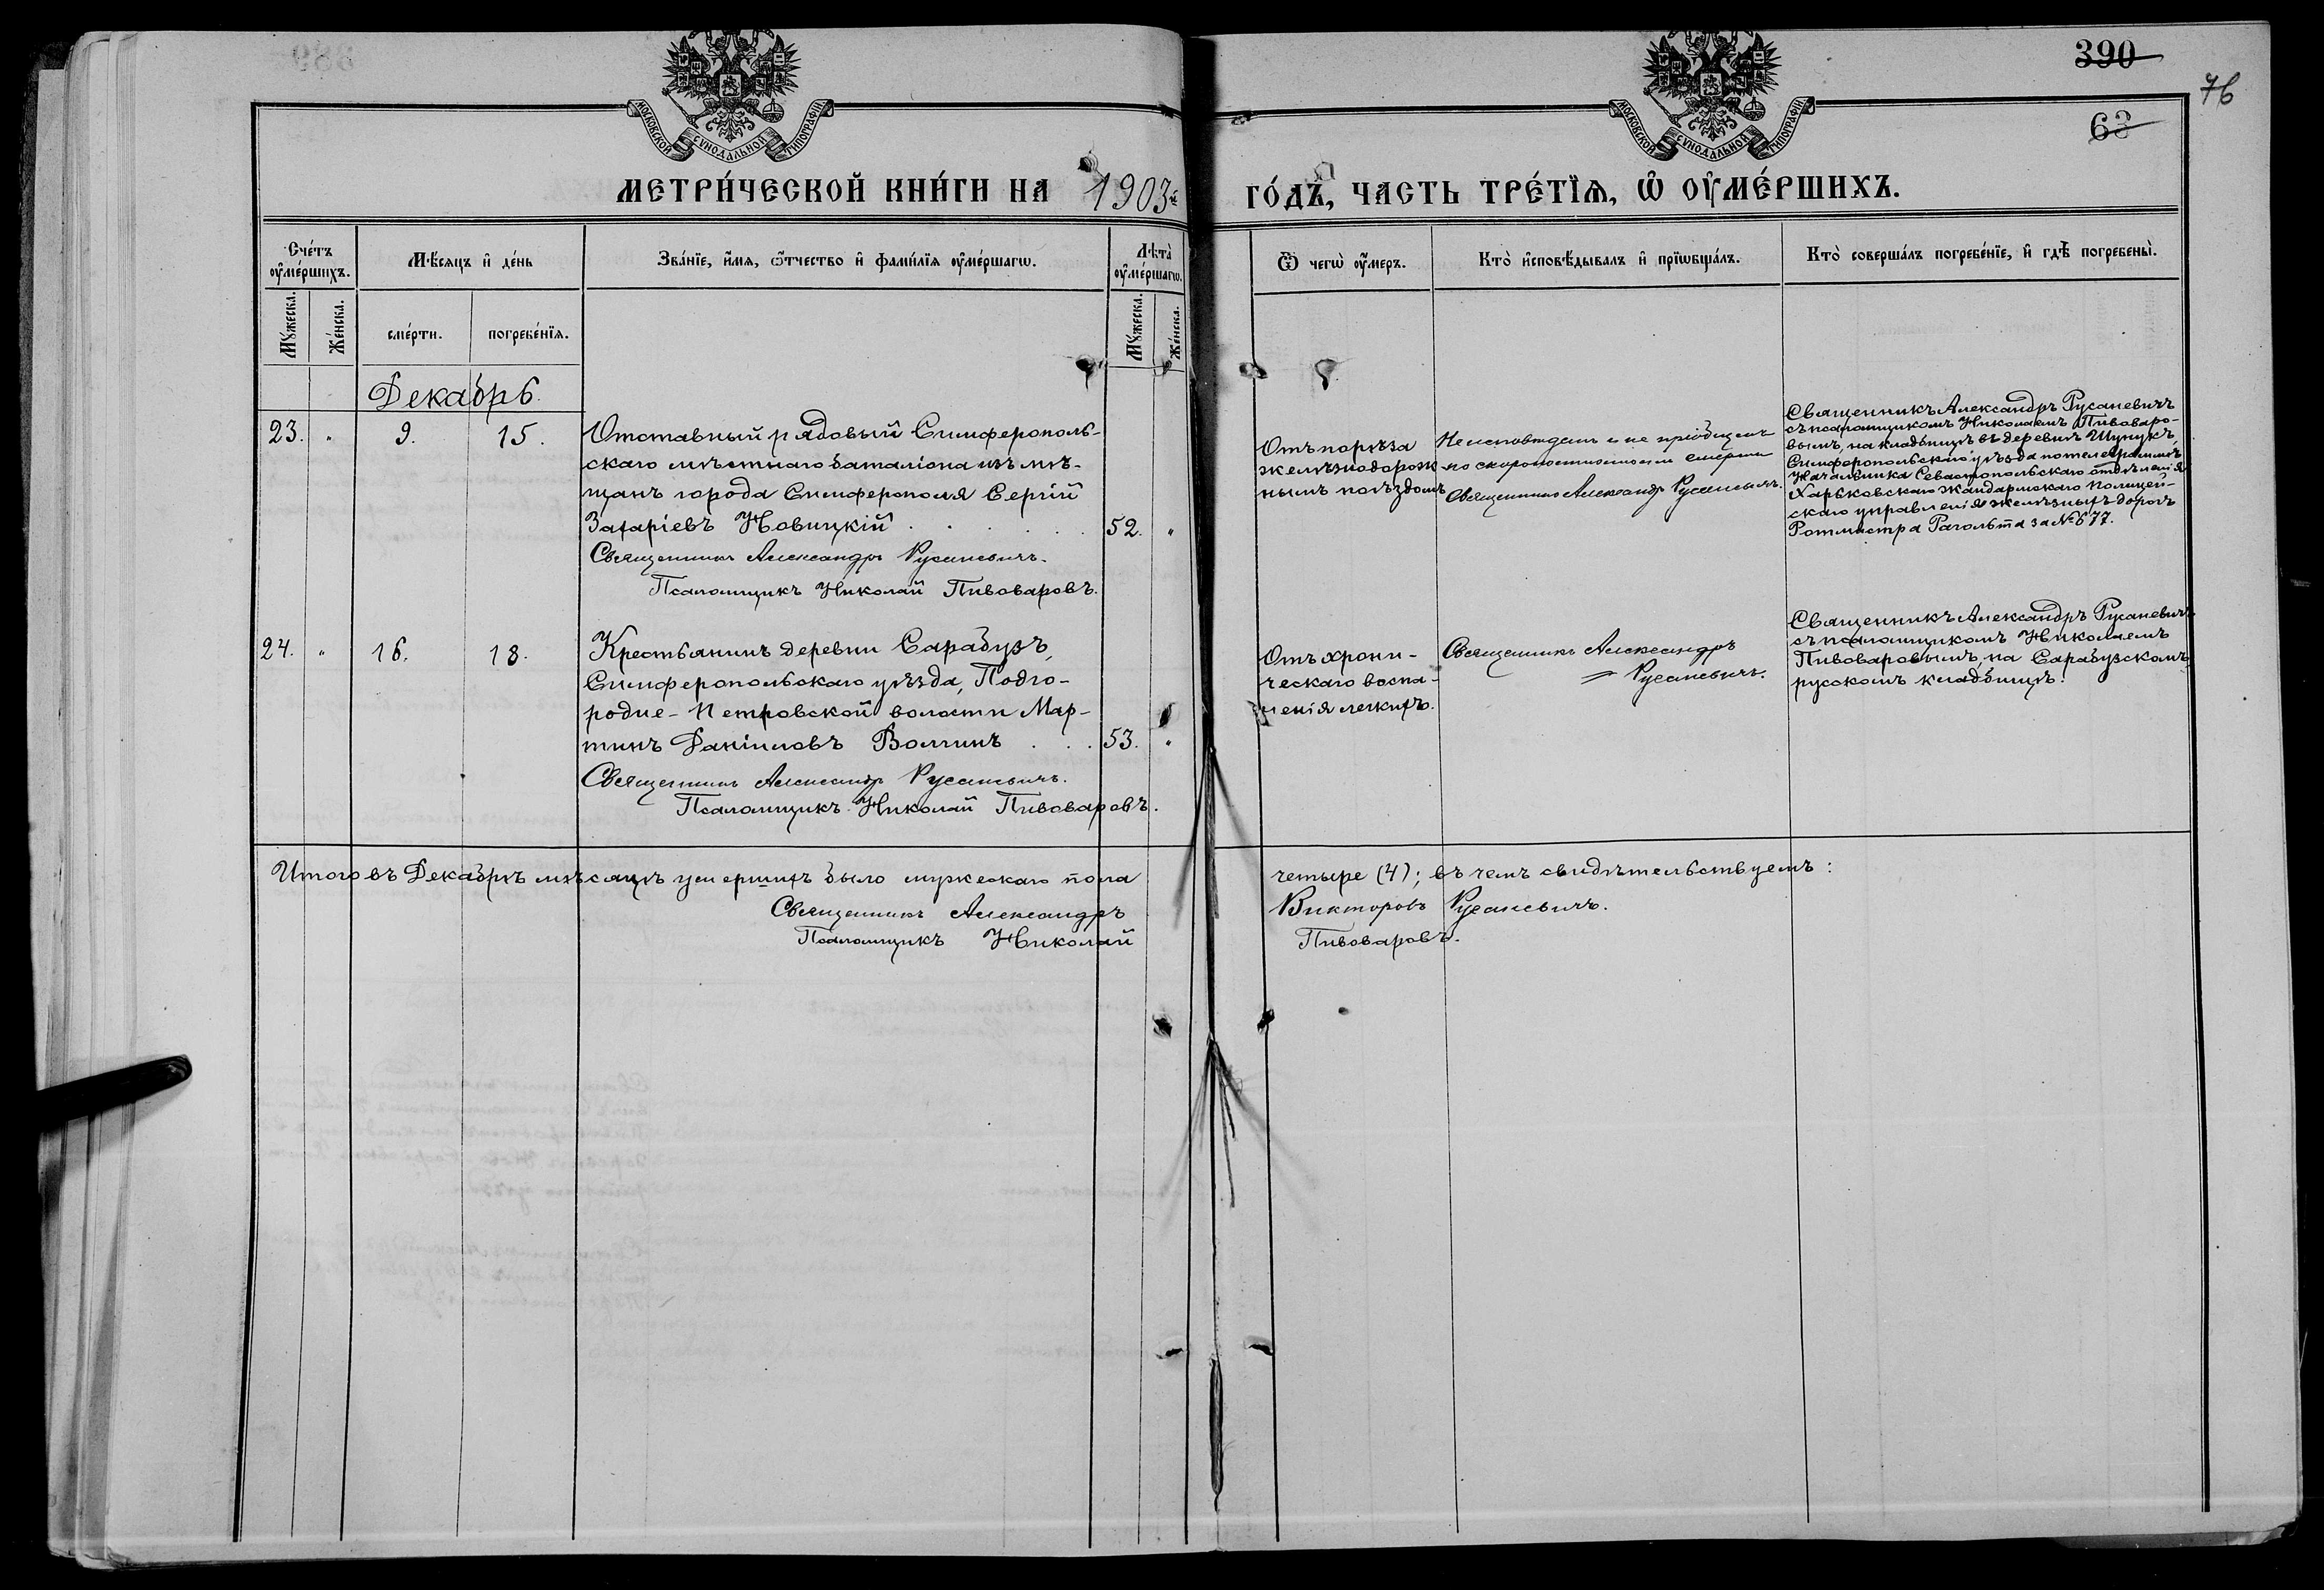 390
76
63
МОСКОВСКОЙ СѴНОДАЛЬНОЙ ТИПОГРАФІИ
МОСКОВСКОЙ СѴНОДАЛЬНОЙ ТИПОГРАФІИ
МЕТРИ́ЧЕСКОЙ КНИ́ГИ НА 1903й ГО́ДЪ, ЧАСТЬ ТРЕ́ТЇѦ, Ѡ҆ ОУ҆МЕ́РШИХЪ.
Сче́тъ оу҆ме́ршихъ.
Мѣ́сѧцъ и҆ де́нь
Зва́нїе, и҆́мѧ, ѻ҆́тчество и҆ фами́лїѧ оу҆ме́ршагѡ.
Лѣ́та оу҆ме́ршагѡ.
Ѿ чегѡ̀ оу҆́меръ.
Кто̀ и҆сповѣ́дывалъ и҆ прїѡбща́лъ.
Кто̀ соверша́лъ погребе́нїе, и҆ гдѣ̀ погребены̀.
Мꙋ́жеска.
Же́нска.
сме́рти.
погребе́нїѧ.
Мꙋ́жеска.
Же́нска.
Декабрь.
23. " 9. 15.
Отставный рядовый Симферополь-
скаго мѣстнаго баталіона изъ мѣ-
щанъ города Симферополя Сергій
Захаріевъ Новицкій . . . . 52. "
Священникъ Александръ Русаневичъ.
Псаломщикъ Николай Пивоваровъ.
Отъ порѣза
желѣзнодорож
нымъ поѣздомъ
Не исповѣданъ и не пріобщенъ
по скоропостижности смерти
Священникъ Александръ Русаневичъ.
Священникъ Александръ Русаневичъ
съ псаломщикомъ Николаемъ Пивоваро-
вымъ, на кладбищѣ въ деревнѣ Шунукъ,
Симферопольскаго уѣзда по телеграммѣ
Начальника Севастопольскаго отдѣленія
Харьковскаго жандармскаго полицей-
скаго управленія желѣзныхъ дорогъ
Ротмистра за № 677.
24. " 16. 18.
Крестьянинъ деревни Сарабузъ,
Симферопольскаго уѣзда, Подго-
родне-Петровской волости Мар-
тинъ Даніиловъ Волчинъ . . . 53. "
Священникъ Александръ Русаневичъ.
Псаломщикъ Николай Пивоваровъ.
Отъ хрони-
ческаго воспа-
ленія легкихъ.
Священникъ Александръ
Русаневичъ.
Священникъ Александръ Русаневичъ
съ псаломщикомъ Николаемъ
Пивоваровымъ, на Сарабузскомъ,
русскомъ кладбищѣ.
Итого въ Декабрѣ мѣсяцѣ умершихъ было мужескаго пола четыре (4); въ чемъ свидѣтельствуемъ:
Священникъ Александръ Викторовъ Русаневичъ.
Псаломщикъ Николай Пивоваровъ.